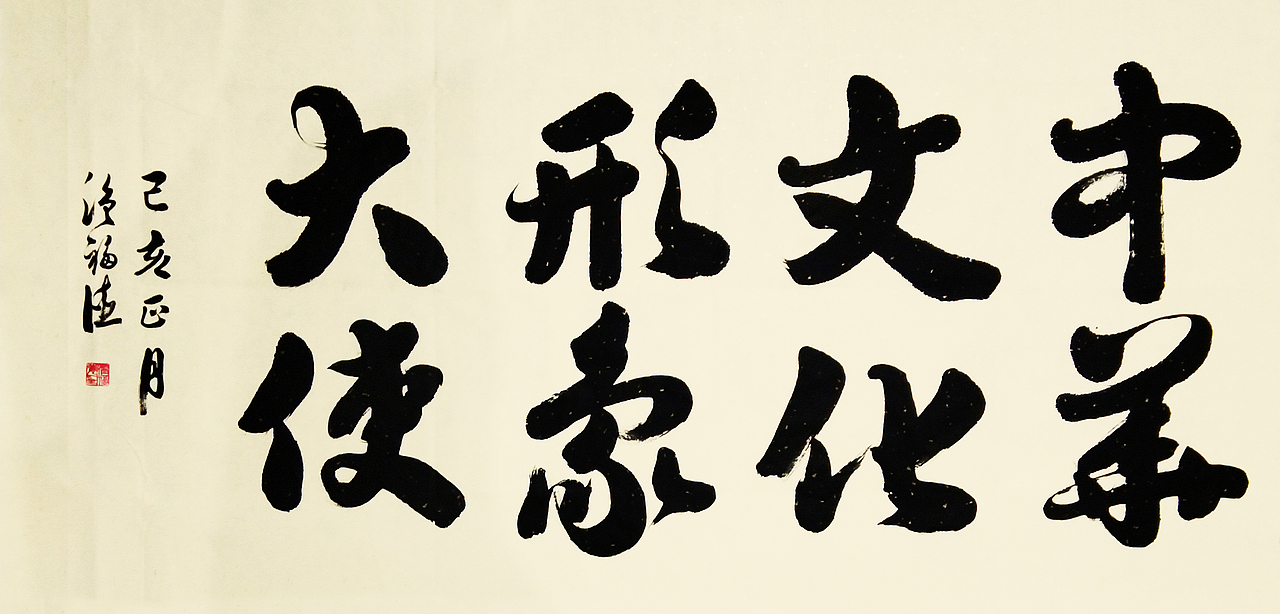 中华
文化
形象
大使
己亥正月
福德